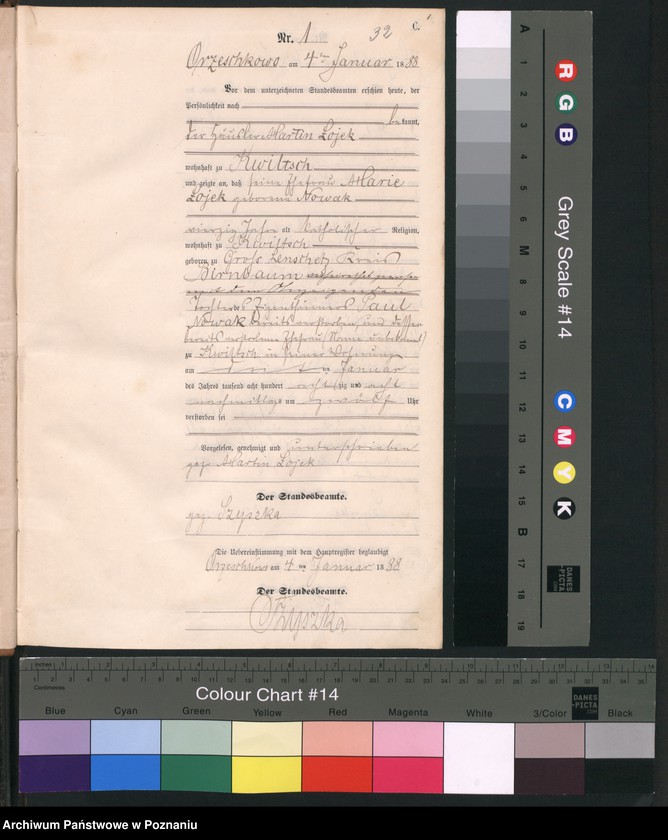 C.
Nr. 1
32
Orzeschkowo am 4ten Januar 1888
Vor dem unterzeichneten Standesbeamten erschien heute, der
Persönlichkeit nach
bekannt,
der Häusler Martin Lojek
wohnhaft zu Kwiltsch
und zeigte an, daß seine Ehefrau Marie
Lojek geborene Nowak
vierzig Jahre alt katholischer Religion,
wohnhaft zu Kwiltsch
geboren zu Groß Lenschetz Kreis
Birnbaum
Tochter des Eigenthümers Paul
Nowak bereits verstorben und dessen
bereits verstorbene Ehefrau (Name unbekannt)
zu Kwiltsch in seiner Wohnung
am dritten Januar
des Jahres tausend acht hundert achtzig und acht
nachmittags um zwölf Uhr
verstorben sei
Vorgelesen, genehmigt und unterschrieben
gez. Martin Lojek
Der Standesbeamte.
gez. Szyszka
Die Uebereinstimmung mit dem Hauptregister beglaubigt
Orzeschkowo am 4ten Januar 1888
Der Standesbeamte.
Szyszka
Grey Scale #14
R
G
B
C
M
Y
K
A
1
2
3
4
5
6
M
8
9
10
11
12
13
14
15
B
17
18
19
DANES
-PICTA
.COM
Inches
Centimetres
Colour Chart #14
DANES
-PICTA
.COM
Blue Cyan Green Yellow Red Magenta White 3/Color Black
Archiwum Państwowe w Poznaniu